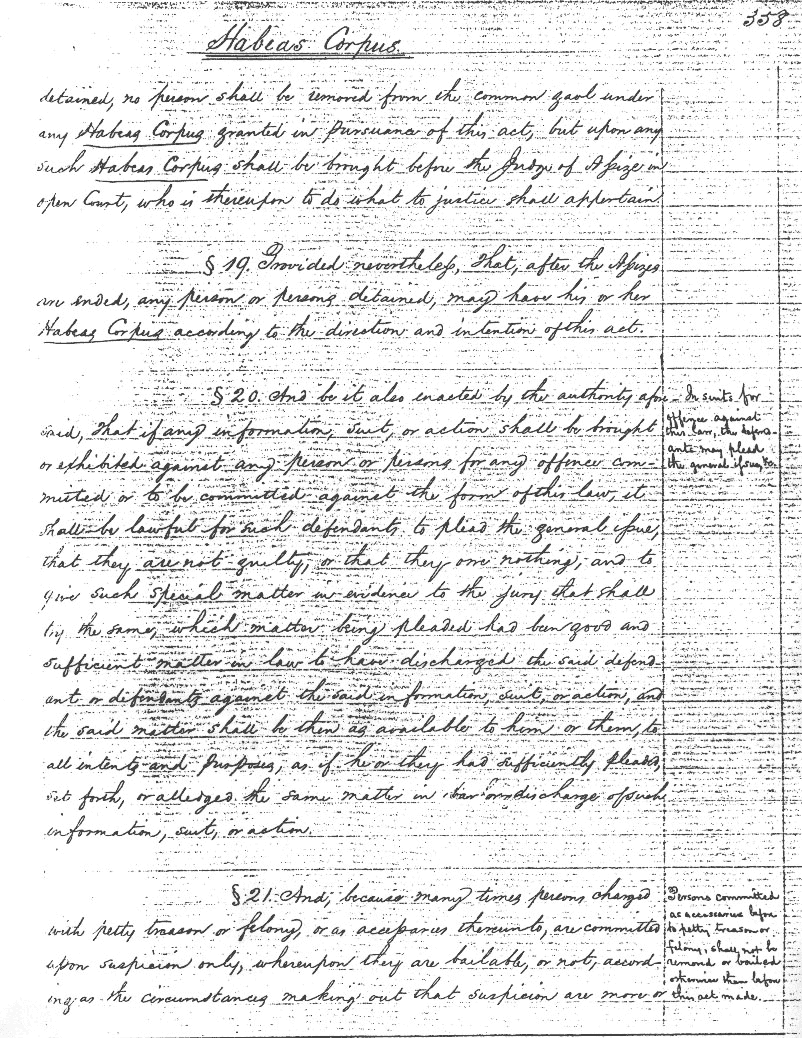 358
Habeas Corpus.
detained, no person shall be removed from the common gaol under
any Habeas Corpus granted in pursuance of this act, but upon any
such Habeas Corpus shall be brought before the Judge of Assize in
open Court, who is thereupon to do what to justice shall appertain.
§ 19. Provided nevertheless, That, after the Assizes
are ended, any person or persons detained, may have his or her
Habeas Corpus according to the direction and intention of this act.
§ 20. And be it also enacted by the authority afore-
said, That if any information, suit, or action shall be brought
or exhibited against any person or persons for any offence com-
mitted or to be committed against the form of this law, it
shall be lawful for such defendants to plead the general issue,
that they are not guilty, or that they owe nothing, and to
give such special matter in evidence to the jury that shall
try the same, which matter being pleaded had been good and
sufficient matter in law to have discharged the said defend-
ant or defendants against the said information, suit, or action, and
the said matter shall be then as available to him or them, to
all intents and purposes, as if he or they had sufficiently pleaded,
set forth, or alledged the same matter in bar or discharge of such
information, suit, or action.
In suits for
offence against
this law, the defend-
ants may plead
the general issue,
§ 21. And, because many times persons charged
with petty treason or felony, or as accessaries thereunto, are committed
upon suspicion only, whereupon they are bailable, or not, accord-
ing as the circumstances making out that suspicion are more or
Persons committed
as accessaries before
to petty treason or
felony, shall not be
removed or bailed
otherwise than before
this act made.